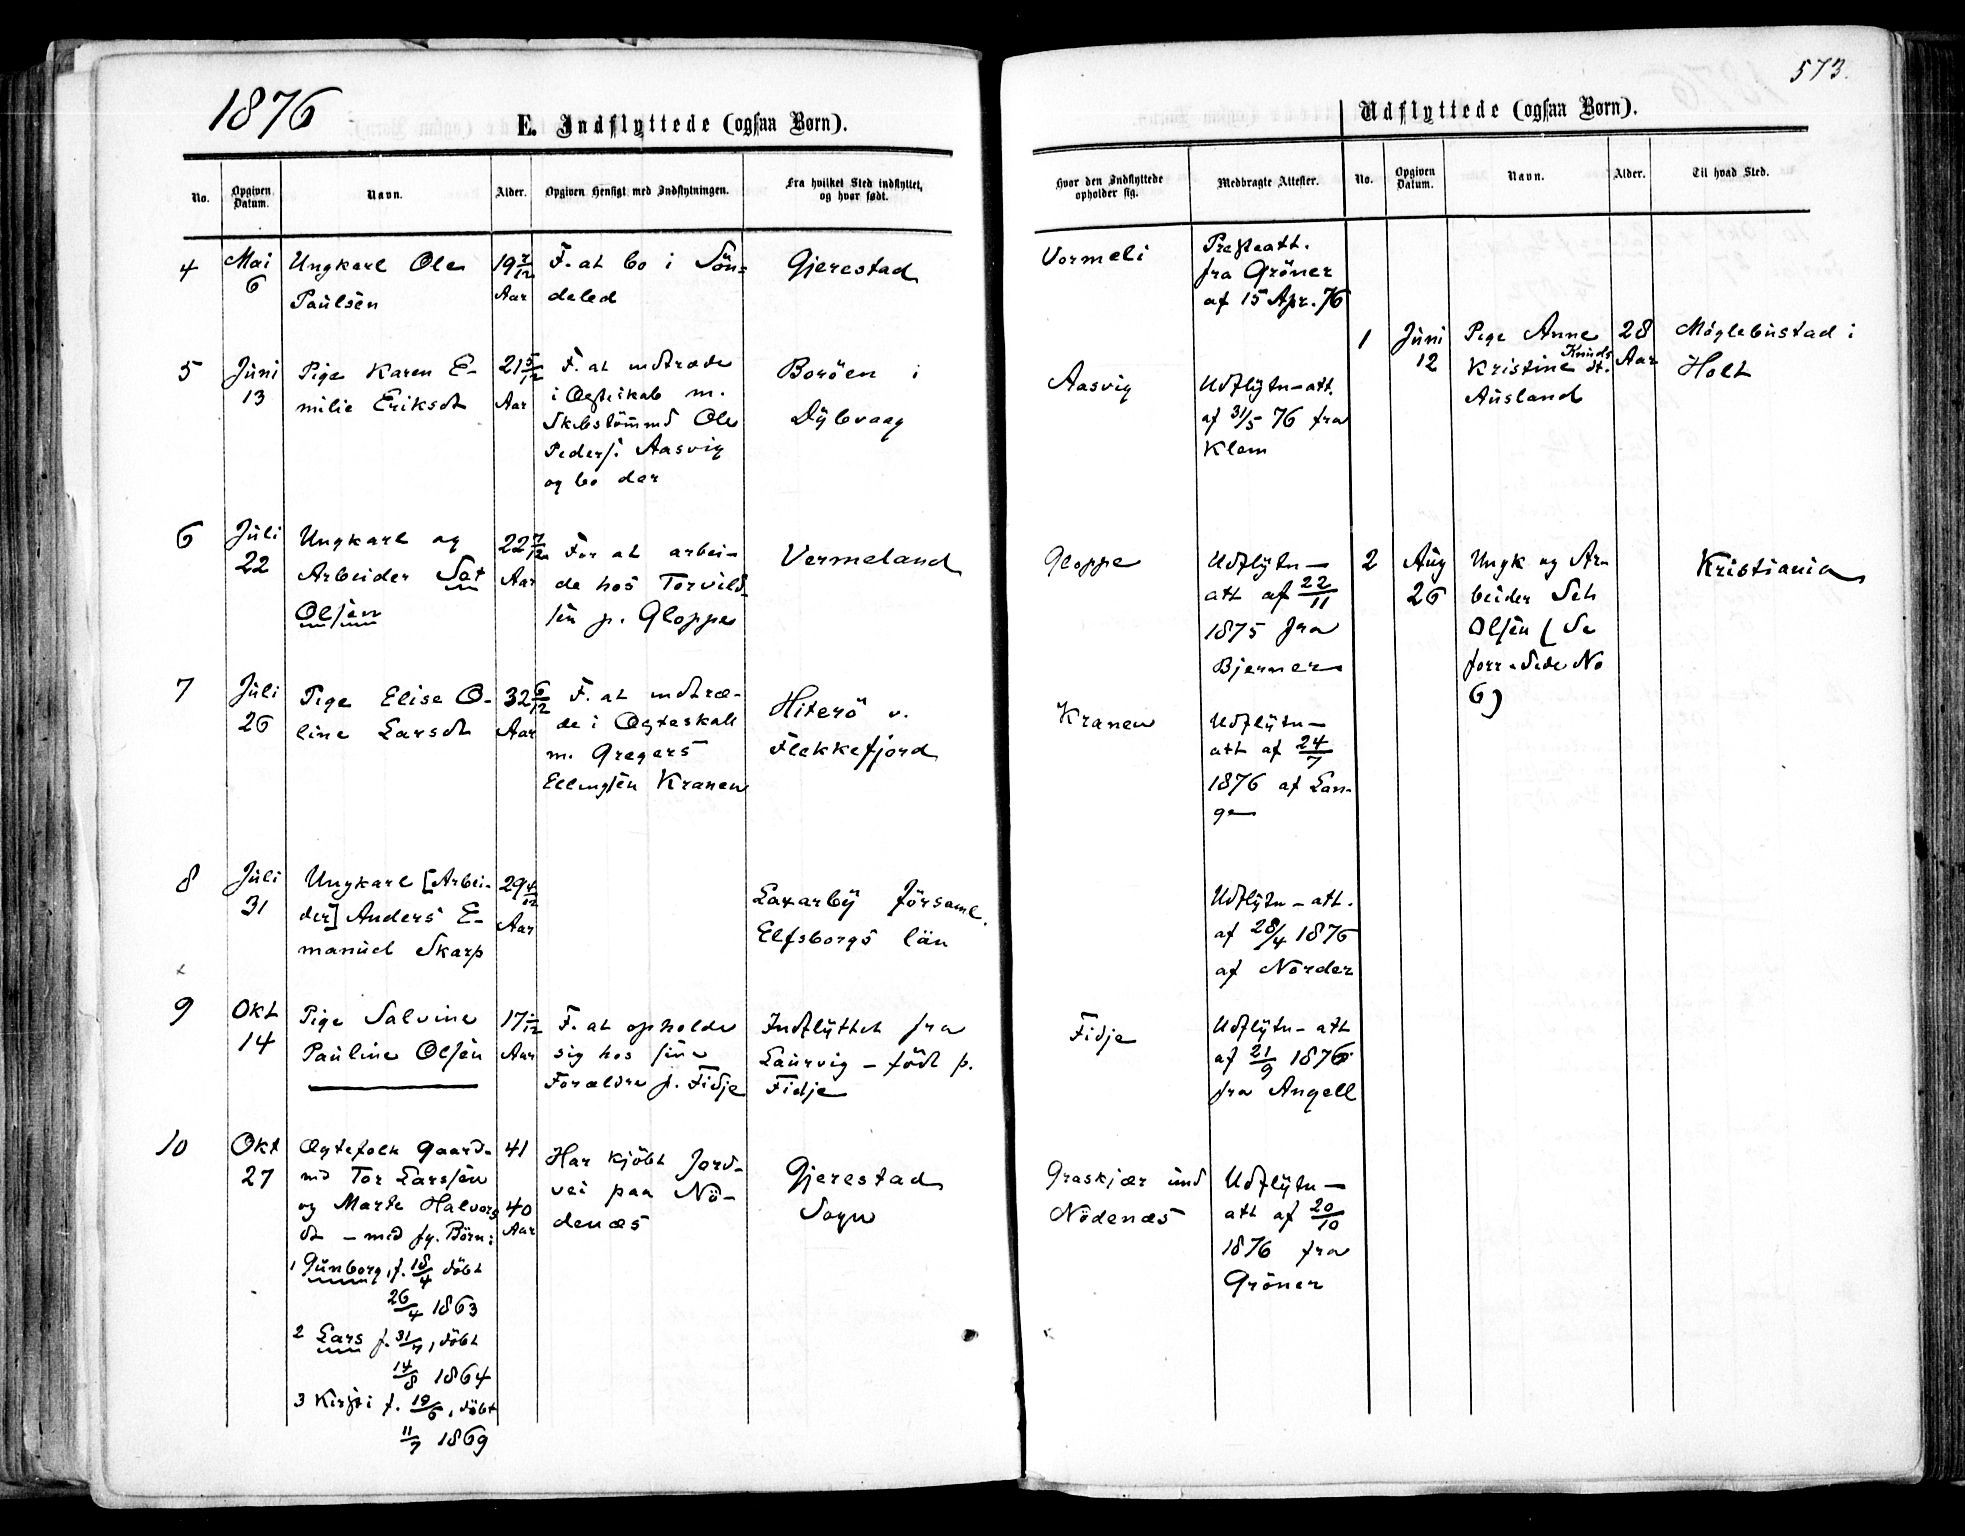 1876
573.
E. Indflyttede (ogsaa Børn).
Udflyttede (ogsaa Børn).
No.
Opgiven Datum.
Navn.
Alder.
Opgiven Hensigt med Indflytningen.
Fra hvilket Sted indflyttet, og hvor født.
Hvor den Indflyttede opholder sig.
Medbragte Attester.
No.
Opgiven Datum.
Navn.
Alder.
Til hvad Sted.
4
Mai
6
Ungkarl Ole
Paulsen
19 7/12
Aar
F. at bo i Sön-
deled
Gjerestad
Vormeli
Presteatt.
fra Gröner
af 15 Apr. 76
5
Juni
13
Pige Karen E-
milie Eriksdt
21 5/12
Aar
F. at indtræde
i Ægteskab m.
Skibstömmd Ole
Peders. Aasvig
og bo der
Boröen i
Dybvaag
Aasvig
Udflytn-att.
af 31/5 76 fra
Klem
6
Juli
22
Ungkarl og
Arbeider Set
Olsen
22 7/12
Aar
For at arbei-
de hos Torvild-
sen p. Gloppe
Vermeland
Gloppe
Udflytn-
att af 22/11
1875 fra
Bjermer
7
Juli
26
Pige Elise O-
line Larsdt
32 6/12
Aar
F. at indtræ-
de i Ægteskab
m. Gregers
Ellingsen Kranen
Hiterö v.
Flekkefjord
Kranen
Udflytn-
att af 24/7
1876 af Lan-
ge
8
Juli
31
Ungkarl [Arbei-
der] Anders E-
manuel Skarp
29 4/12
Aar
Laxarby Församl.
Elfsborgs län
Udflytn-att.
af 28/4 1876
af Norder
9
Okt
14
Pige Salvine
Pauline Olsen
17
Aar
F. at opholde
sig hos sine
Forældre p. Fidje
Indflyttet fra
Laurvig - födt p.
Fidje
Fidje
Udflytn-att
af 21/9 1876
fra Angell
10
Okt
27
Ægtefolk Gaard-
md Tor Larssen
og Marte Halvors
dt - med fg. Börn:
1 Gunborg, f. 18/4 döbt
26/4 1863
2 Lars f. 31/7, döbt
14/8 1864
3 Kirsti f. 19/6, döbt
11/7 1869
41
40
Aar
Har kjöbt Jord-
vei paa Nö-
denæs
Gjerestad
Sogn
Graskjær und
Nödenæs
Udflytn-
att af 20/10
1876 fra
Gröner
1
Juni
12
Pige Anne
Kristine Knuds
dt.
Ausland
28
Aar
Möglebustad i
Holt
2
Aug
26
Ungk og Ar-
beider Set
Olsen (Se
forr. Side No
6)
Kristiania